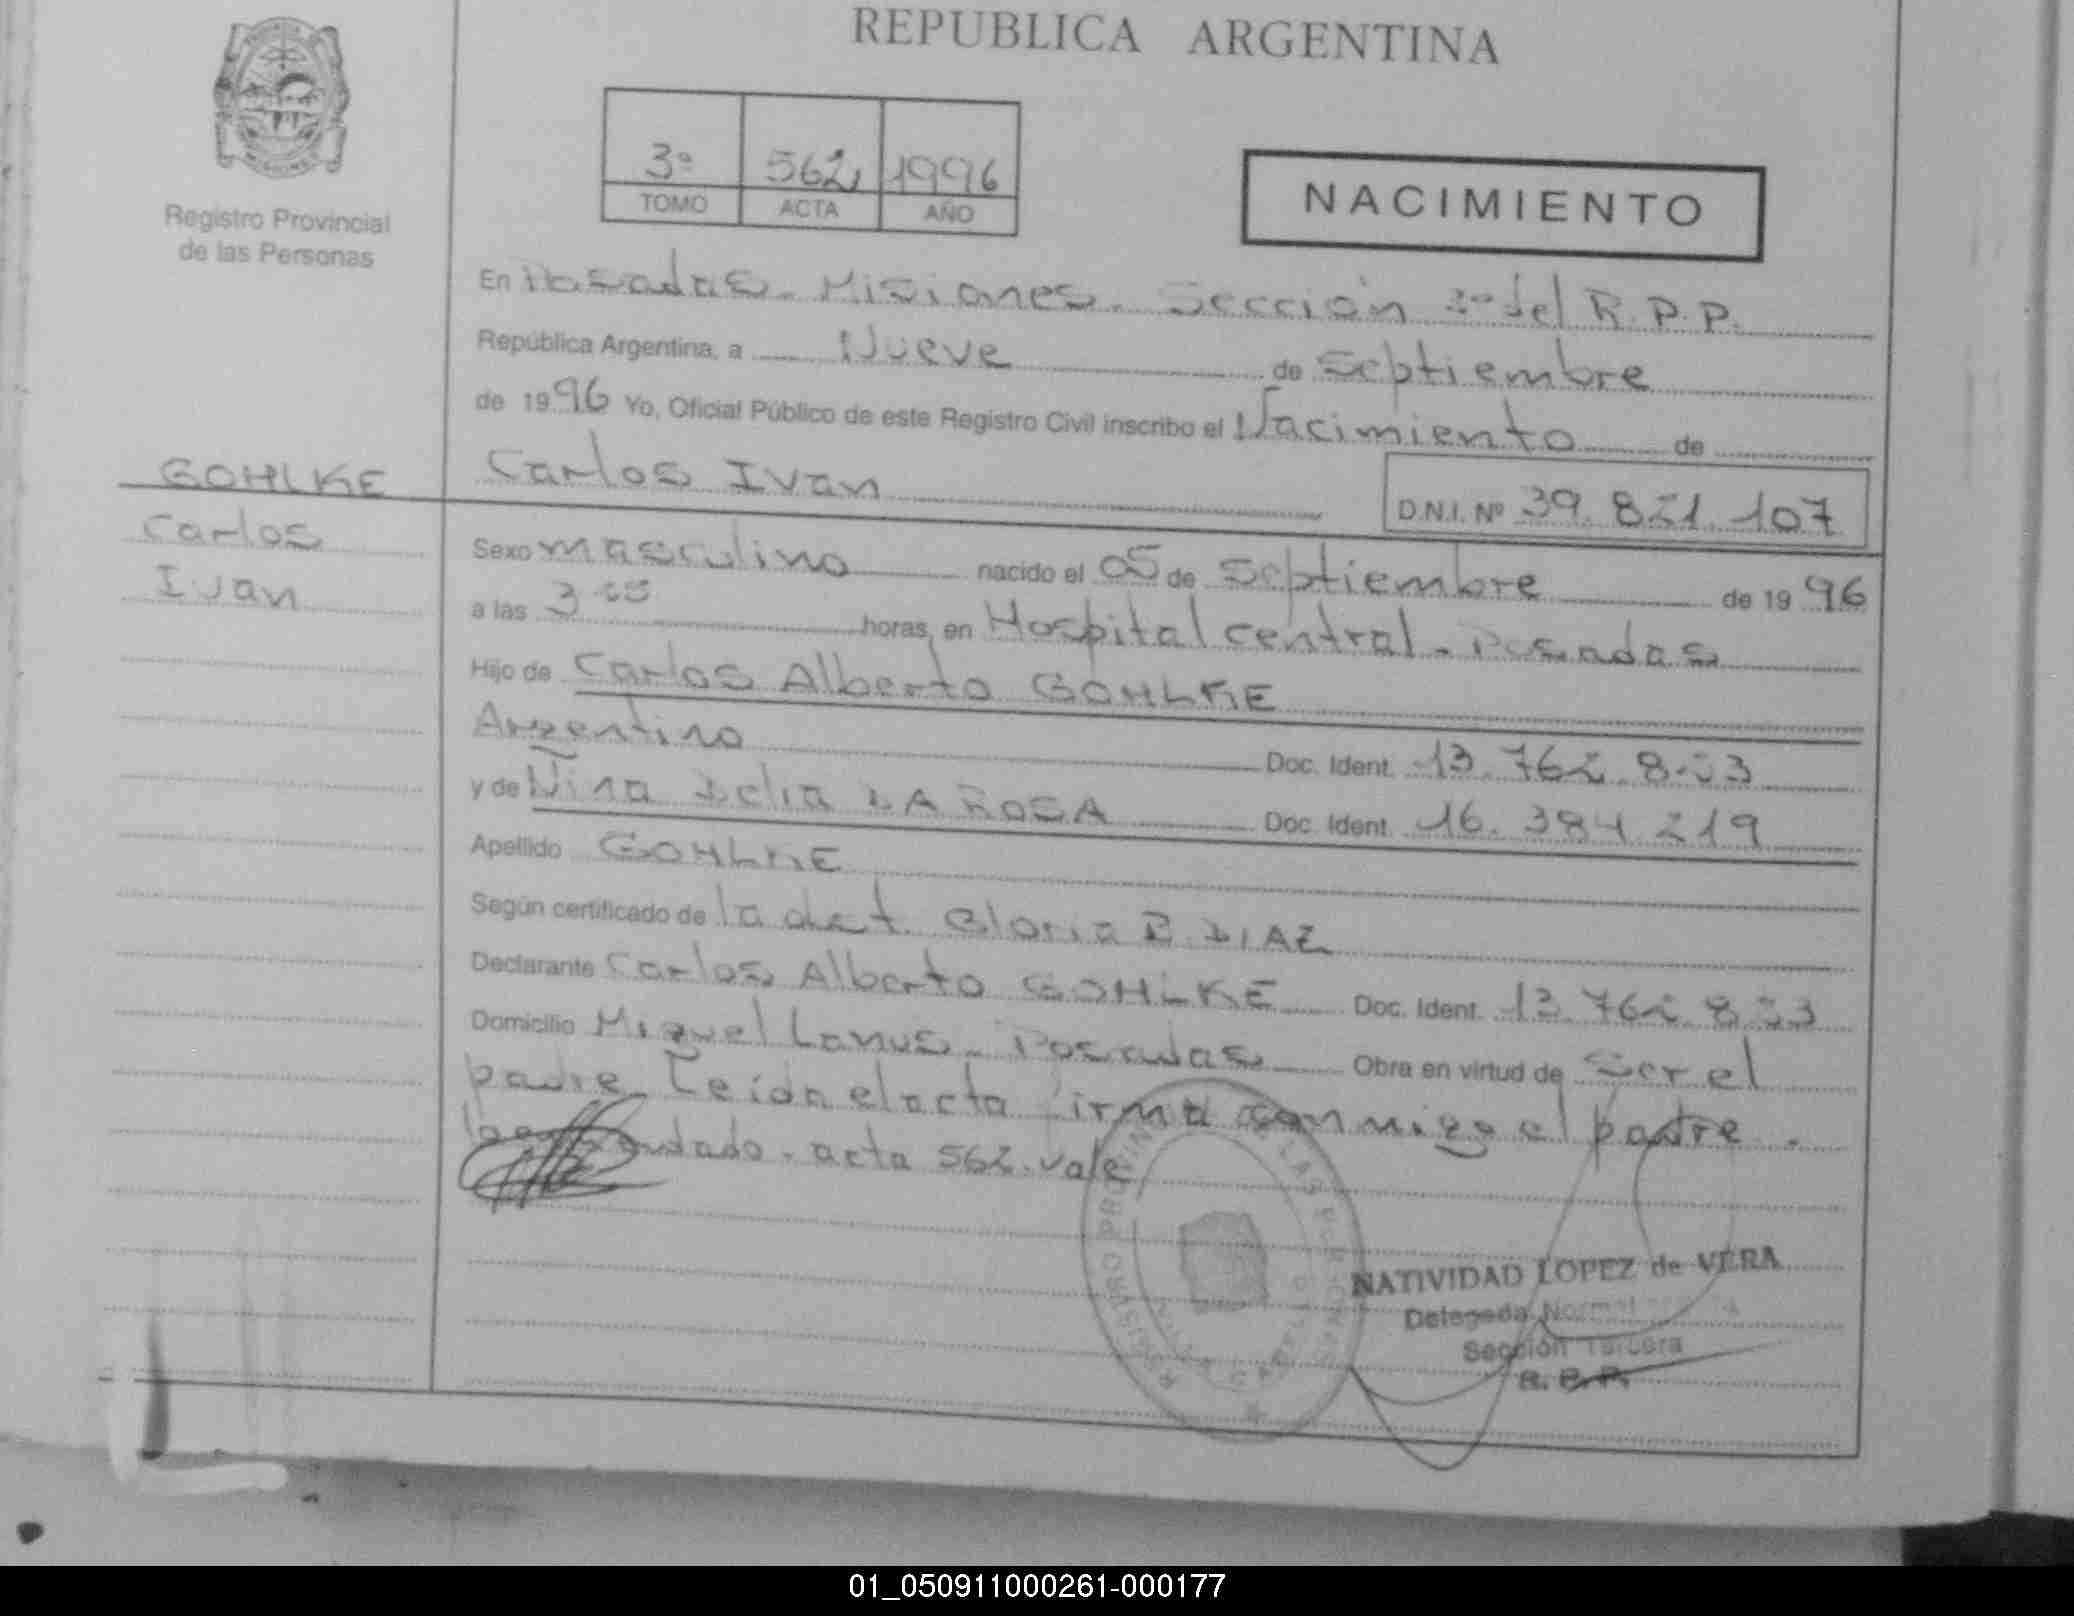 REPUBLICA ARGENTINA
Registro Provincial
de las Personas
3º 562 1996
TOMO ACTA AÑO
NACIMIENTO
En Posadas - Misiones - Sección 3º del R.P.P.
República Argentina, a Nueve de Septiembre
de 1996 Yo, Oficial Público de este Registro Civil inscribo el Nacimiento de
GOHLKE
Carlos
Ivan
Carlos Ivan
D.N.I. Nº 39.821.107
Sexo masculino nacido el 05 de Septiembre de 1996
a las 3 horas, en Hospital central - Posadas
Hijo de Carlos Alberto GOHLKE
Argentino Doc. Ident. 13.762.833
y de Nina Delia DA ROSA Doc. Ident. 16.384.219
Apellido GOHLKE
Según certificado de la Gloria B. DIAZ
Declarante Carlos Alberto GOHLKE Doc. Ident. 13.762.833
Domicilio Miguel Lanus - Posadas Obra en virtud de Ser el
padre Leida el acta firma conmigo el padre.
acta 562. vale
REGISTRO PROVINCIAL DE LAS PERSONAS
NATIVIDAD LOPEZ de VERA
Delegada Normal
Sección Tercera
R. P. P.
01_050911000261-000177